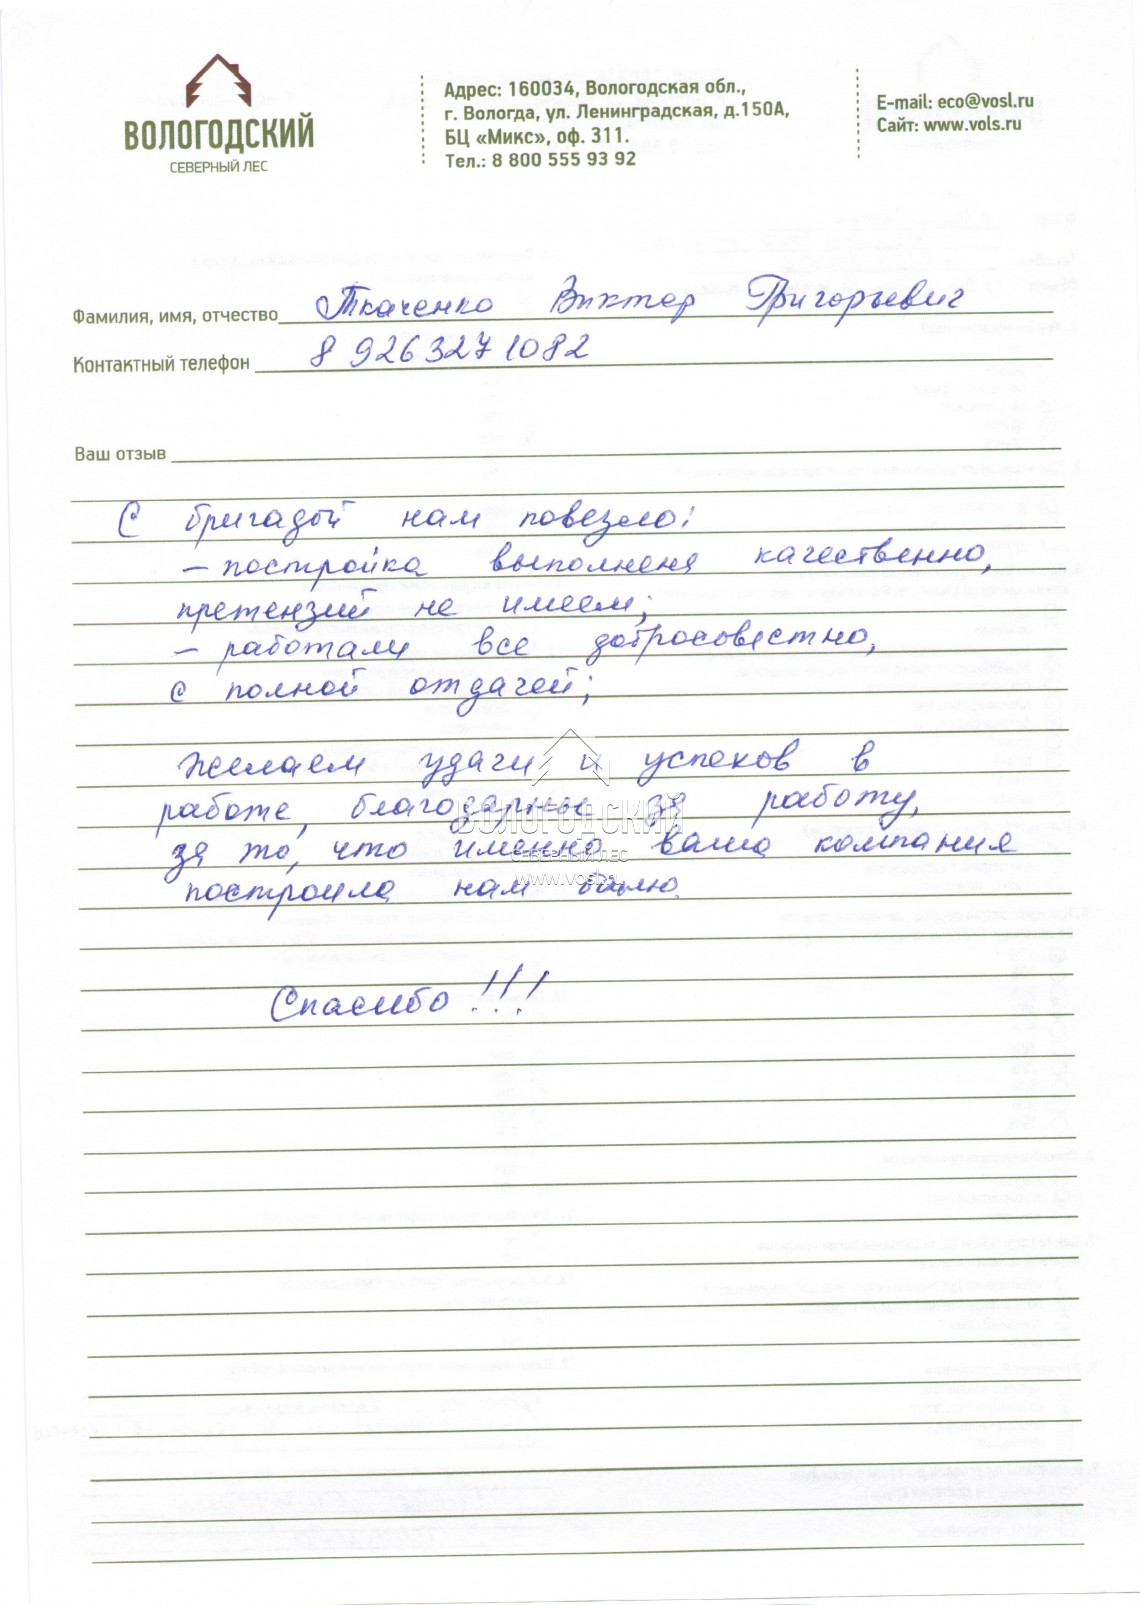 ВОЛОГОДСКИЙ
СЕВЕРНЫЙ ЛЕС
Адрес: 160034, Вологодская обл.,
г. Вологда, ул. Ленинградская, д.150А,
БЦ «Микс», оф. 311.
Тел.: 8 800 555 93 92
E-mail: eco@vosl.ru
Сайт: www.vols.ru
Фамилия, имя, отчество Ткаченко Виктор Григорьевич
Контактный телефон 8 926 327 1082
Ваш отзыв
С бригадой нам повезло:
– постройка выполнена качественно,
претензий не имеем;
– работали все добросовестно,
с полной отдачей;
Желаем удачи и успехов в
работе, благодарны за работу,
за то, что именно ваша компания
построила нам баню.
Спасибо!!!
ВОЛОГОДСКИЙ
СЕВЕРНЫЙ ЛЕС
www.vosl.ru